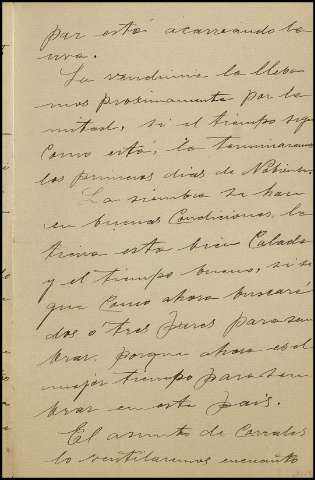 par está acarreando la
uva.
La vendimia la lleba
mos proximamente por la
mitad, si el tiempo sigue
como está, la terminaremos
los primeros dias de Nobiembre.
La siembra se hace
en buenas Condiciones, la
tierra esta bien Calada
y el tiempo bueno, si si
gue Como ahora buscaré
dos o tres pares para sem
brar, porque ahora es el
mejor tiempo para sem
brar en este pais.
El asunto de Corrales
lo ventilaremos encuanto